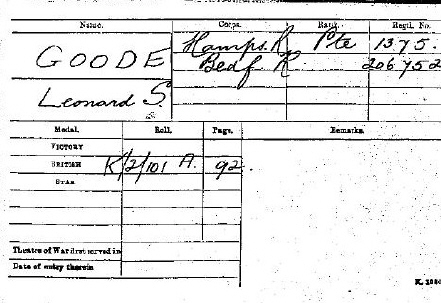 Name. Corps. Rank. Regtl. No.
GOODE Hamps. R. Pte 1375.
Bedf R 206752
Leonard S.
Medal. Roll. Page. Remarks.
VICTORY
BRITISH K/2/101 A. 92.
STAR
Theatre of War first served in
Date of entry therein